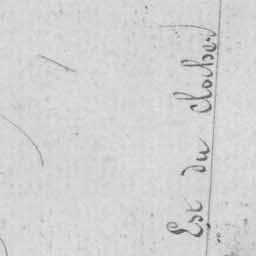 Est du clocher